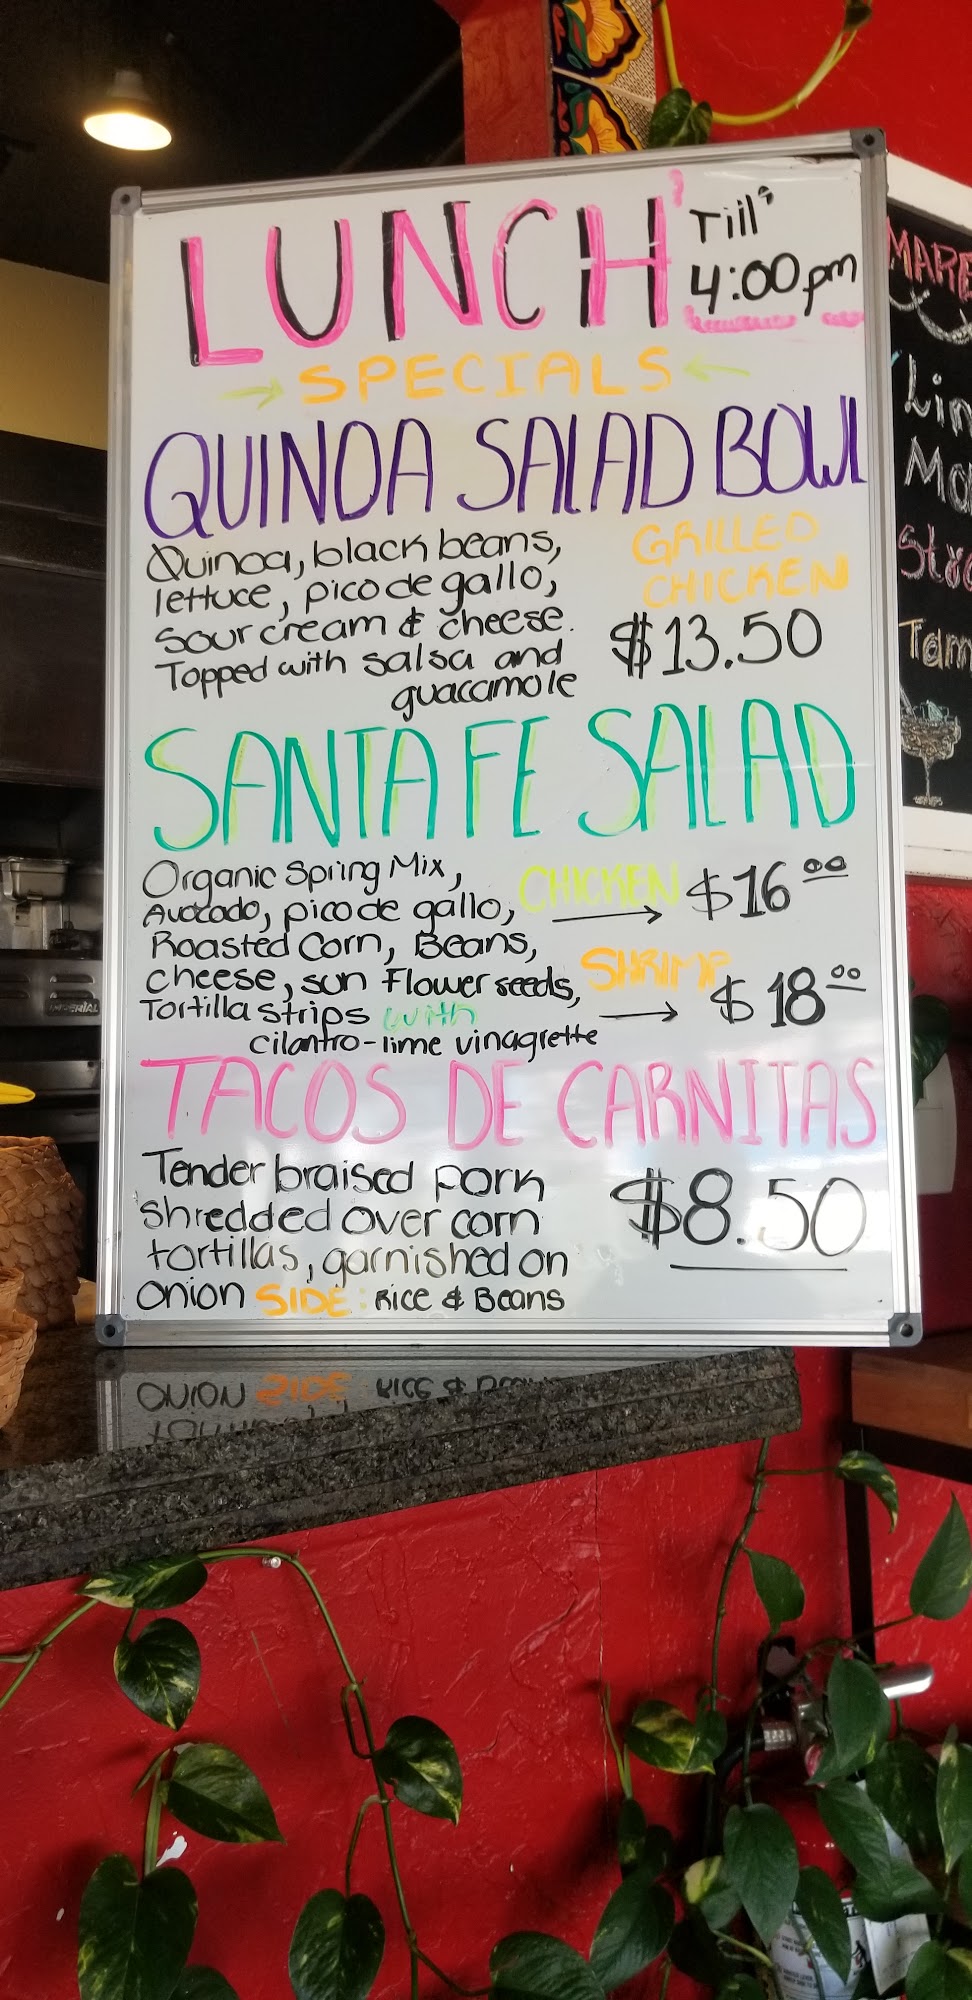 LUNCH' Till'
4:00pm
→ SPECIALS ←
QUINOA SALAD BOWL
Quinoa, black beans,
lettuce, pico de gallo,
Sour cream & cheese.
Topped with salsa and
guacamole
GRILLED
CHICKEN
$13.50
SANTA FE SALAD
Organic Spring Mix,
Avocado, pico de gallo,
Roasted Corn, Beans,
cheese, sun Flower seeds,
Tortilla strips with
cilantro-lime vinagrette
CHICKEN → $16.00
SHRIMP → $18.00
TACOS DE CARNITAS
Tender braised pork
shredded over corn
tortillas, garnished on
onion SIDE: Rice & Beans
$8.50
IMPERIAL